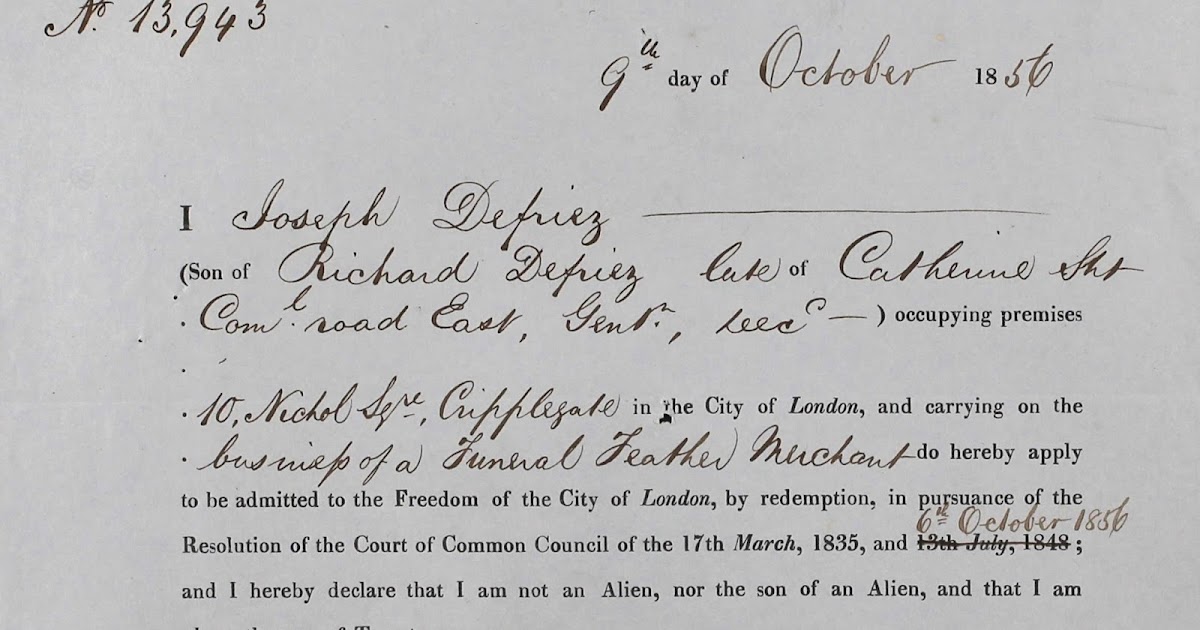 No. 13,943
9th day of October 1856
I Joseph Defriez
(Son of Richard Defriez late of Catherine Sht
Coml. road East, Gentn., decd — ) occupying premises
10, Nichol Sqre, Cripplegate in the City of London, and carrying on the
business of a Funeral Feather Merchant do hereby apply
to be admitted to the Freedom of the City of London, by redemption, in pursuance of the
6th October 1856
Resolution of the Court of Common Council of the 17th March, 1835, and 13th July, 1848 ;
and I hereby declare that I am not an Alien, nor the son of an Alien, and that I am